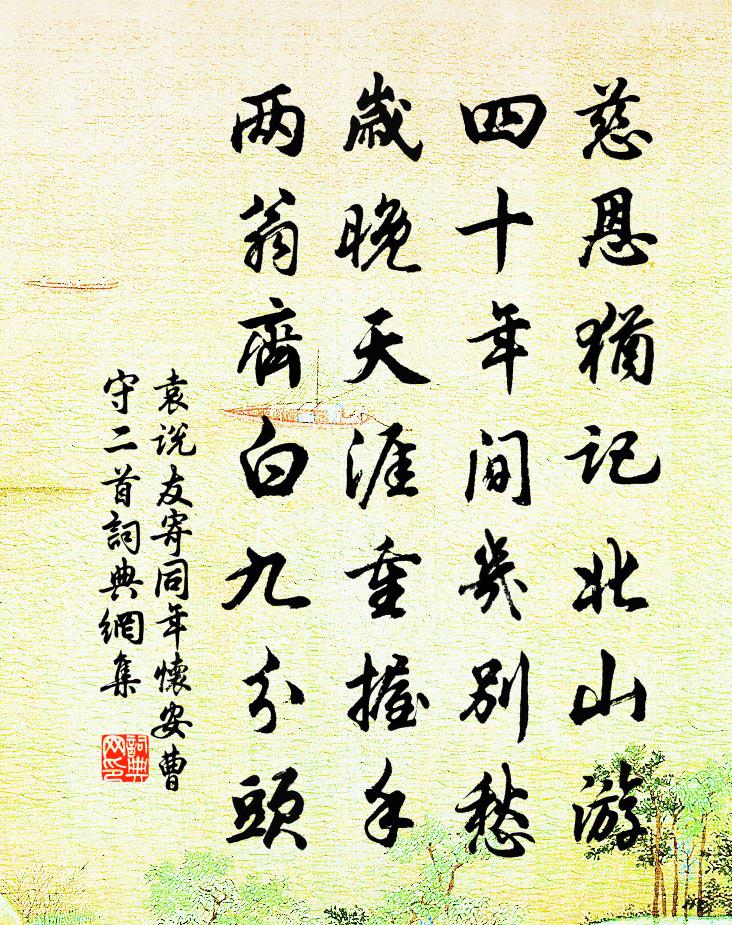 慈恩猶记北山游
四十年间幾别愁
歲晚天涯重握手
两翁齊白九分頭
袁说友寄同年懷安曹
守二首詞典網集
詞典
网印